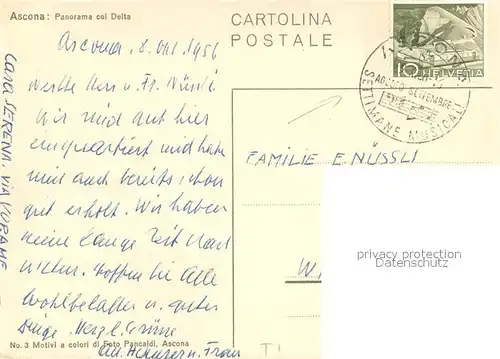 Ascona: Panorama col Delta
CARTOLINA
POSTALE
10 HELVETIA
ASCONA
AGOSTO SETTEMBRE
SETTIMANE MUSICALI
Ascona, 8. Okt. 1956
Werthe Herr u. Fr. Nüssli
Wir sind gut hier
einquartiert und habe
uns auch bereits schon
gut erholt. Wir haben
keine lange Zeit nach
Hoffen Sie Alle
Wohlbehalten u. guter
Dinge. Herzl. Grüsse
u. Frau
CASA SERENA. VIA
FAMILIE E. NÜSSLI
W
privacy protection
Datenschutz
No. 3 Motivi a colori di Foto Pancaldi, Ascona
TI